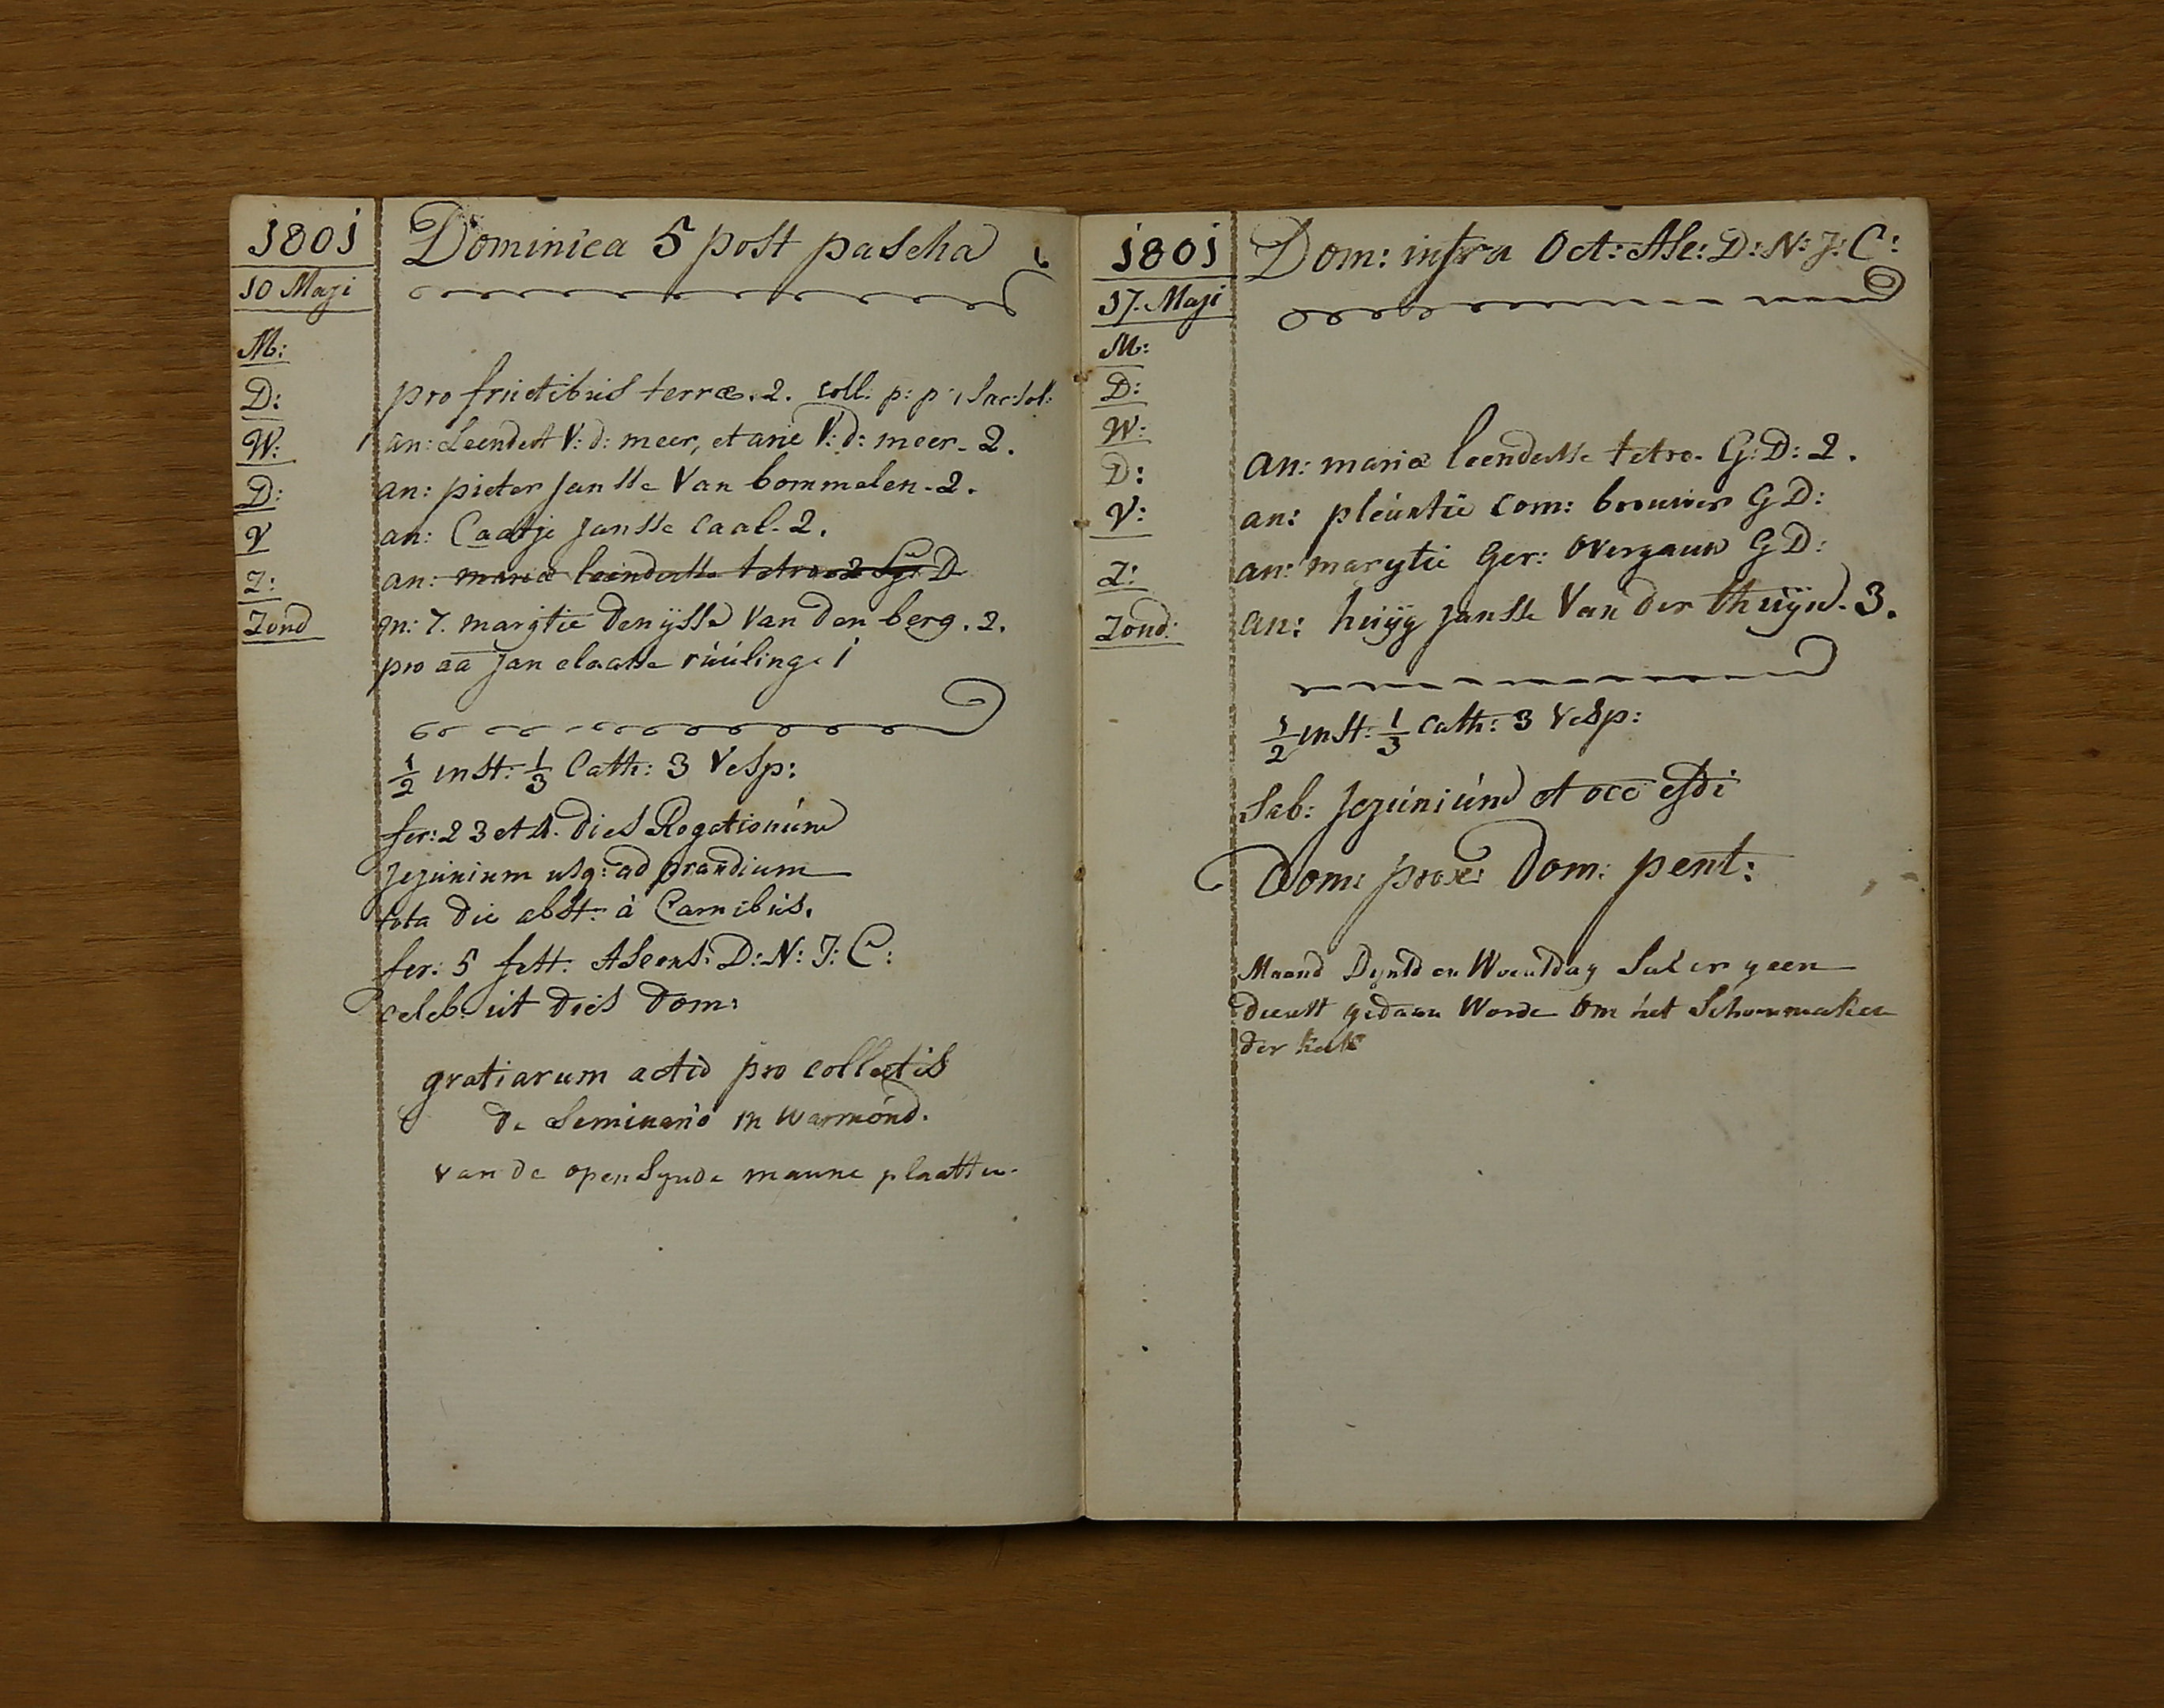 1801
Dominica 5 post pascha
10 Maji
M:
D: pro fructibus terræ. 2. coll: p: p:
W: an: Leendert V: d: meer, et arie V: d: meer. 2.
D: an: pieter Jansse Van bommelen. 2.
V an: Caatje Jansse Caal. 2.
Z: an: maria leendertse tetroe 2 D
Zond m: 7. margtie Denysse Van Den berg. 2.
pro aa Jan claasse rúúling. 1
1/2 inst: 1/3 Cath: 3 Vesp:
fer: 2 3 et 4. Dies Rogationúm
Jejunium usq: ad prandium
tota Die abst: à Carnibús.
fer: 5 fest: Ascens: D: N: J: C:
celeb: út Dies Dom:
gratiarum actio pro collectis
De Seminario in Warmónd.
van de openSynde plaatse.
1801
Dom: infra Oct: Asc: D: N: J: C:
17. Maji
M:
D:
W:
D: an: maria leendertse tetroe G: D: 2.
V: an: pleúntie Corn: brouwer G D:
Z: an: marytie Ger: Overgauw G D:
Zond: an: húijg Jansse Van der thúijn. 3.
1/2 inst: 1/3 Cath: 3 Vesp:
Sab: Jejúniúm et occ esdi
Dom: prox: Dom: pent:
Maand Dynsd en Woensdag Sal er geen
dienst gedaan Worde Om het Schoonmaken
der kerk